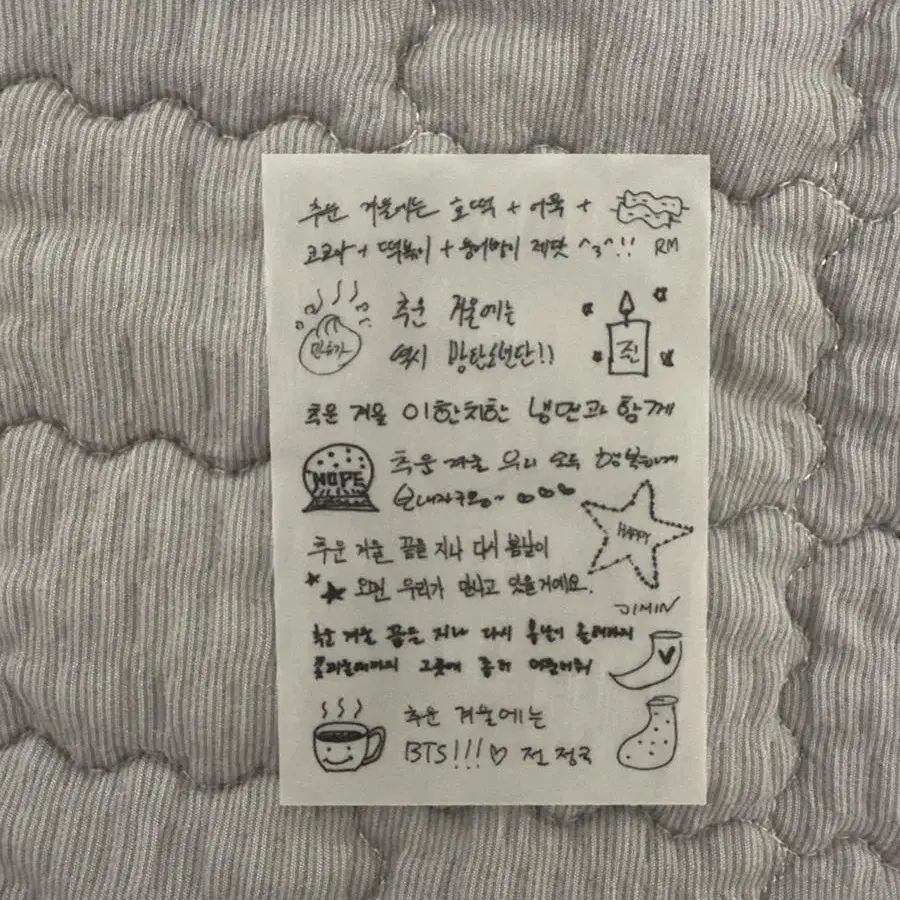 추운 겨울에는 호떡 + 어묵 +
코코아 + 떡볶이 + 붕어빵이 제맛 ^3^!! RM
민슈가
추운 겨울에는
역시 방탄소년단!!
진
추운 겨울 이한치한 냉면과 함께
HOPE
추운 겨울 우리 모두 행복하게
보내자구요~
HAPPY
추운 겨울 끝을 지나 다시 봄날이
오면 우리가 만나고 있을거예요.
JIMIN
추운 겨울 끝을 지나 다시 봄날이 올때까지
꽃피울때까지 그곳에 좀더 머물러줘
V
추운 겨울에는
BTS!!! ♡ 전정국